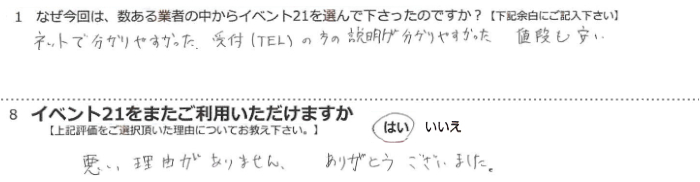 1 なぜ今回は、数ある業者の中からイベント21を選んで下さったのですか？【下記余白にご記入下さい】
ネットで分かりやすかった、受付(TEL)の方の説明が分かりやすかった 値段も安い
8 イベント21をまたご利用いただけますか
【上記評価をご選択頂いた理由についてお教え下さい。】 はい いいえ
悪い理由がありません、 ありがとうございました。